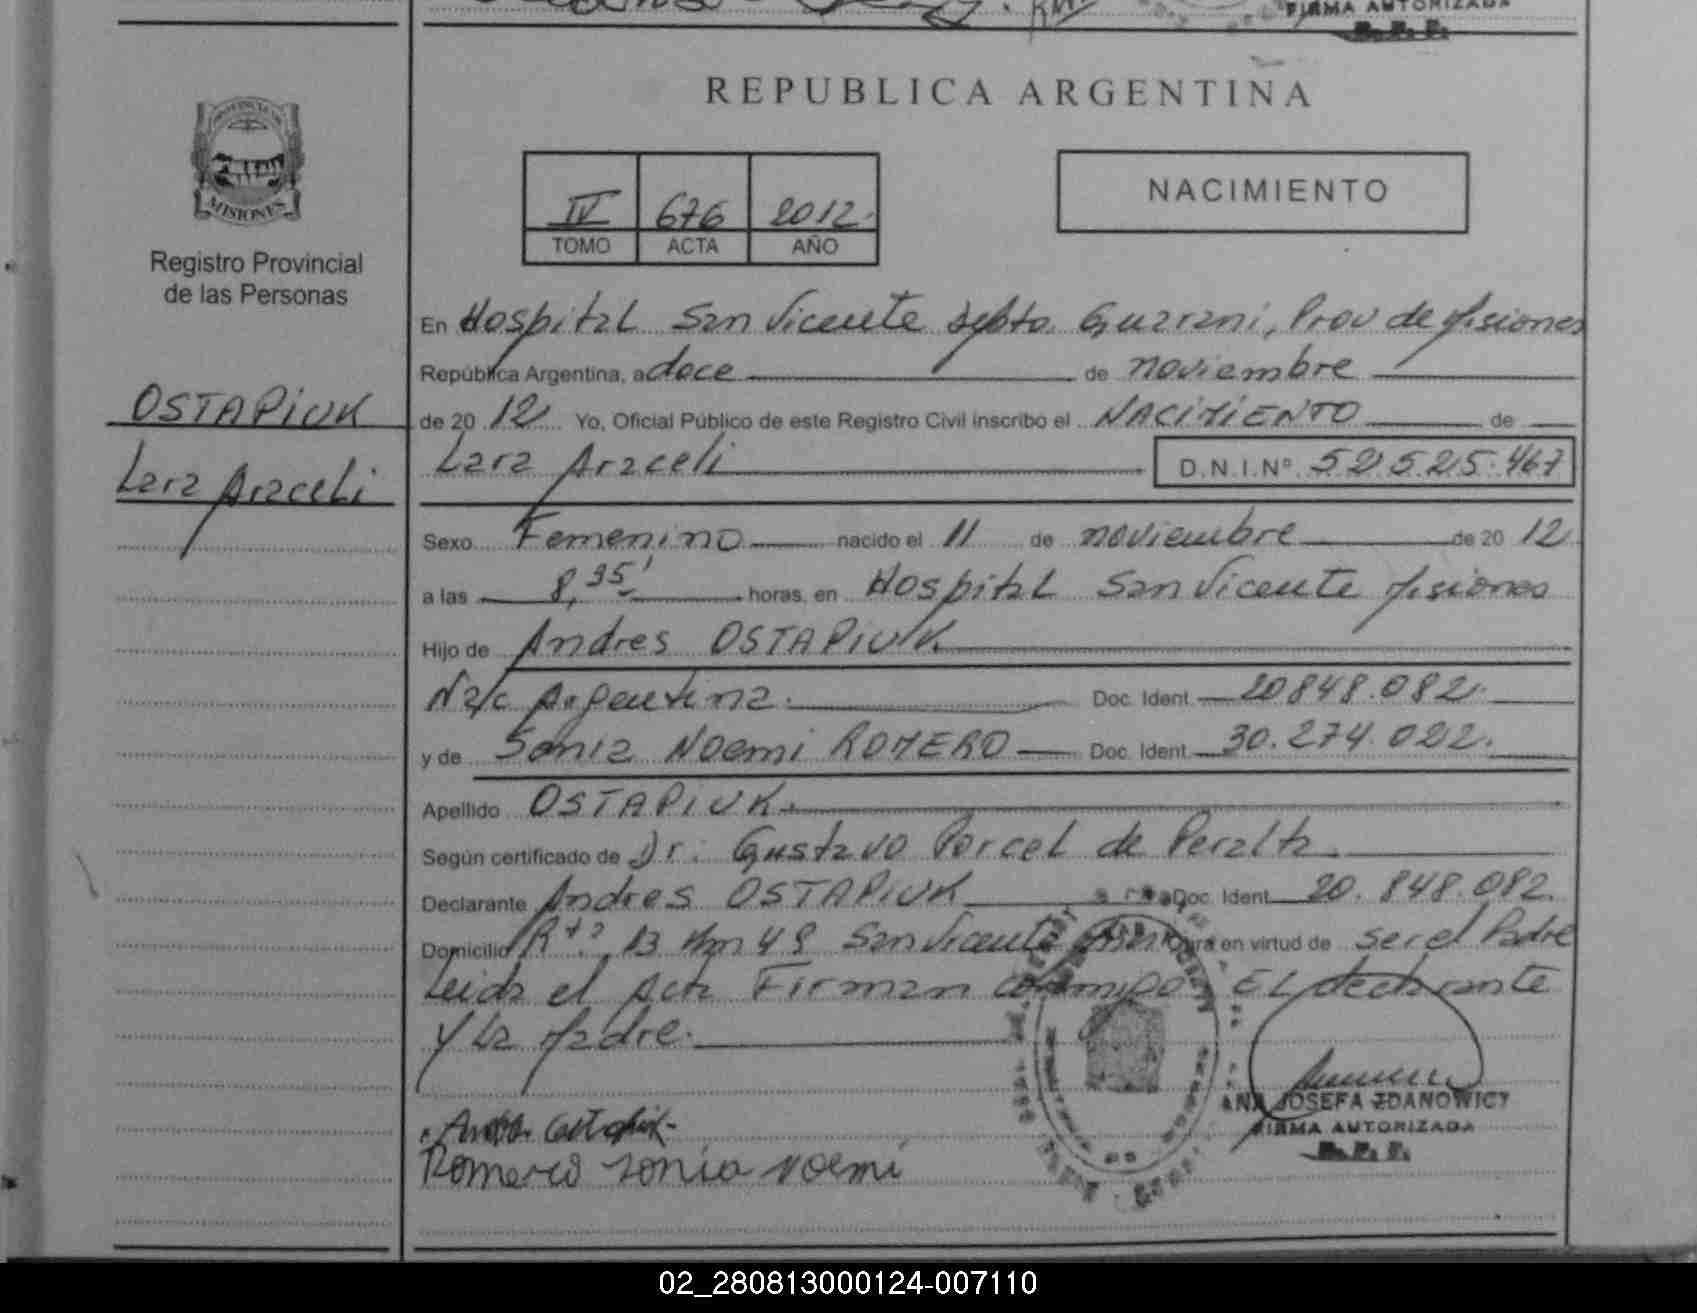 FIRMA AUTORIZADA
R.P.P.
REPUBLICA ARGENTINA
PROVINCIA DE
MISIONES
Registro Provincial
de las Personas
IV 676 2012.
TOMO ACTA AÑO
NACIMIENTO
OSTAPIUK
Lara Araceli
En Hospital San Vicente Depto Guarani, Prov de Misiones
República Argentina, a doce de noviembre
de 20 12 Yo, Oficial Público de este Registro Civil inscribo el NACIMIENTO de
Lara Araceli D.N.I.Nº 52525.467
Sexo Femenino nacido el 11 de noviembre de 20 12
a las 8,35' horas, en Hospital San Vicente Misiones
Hijo de Andres OSTAPIUK
Nac Argentina. Doc. Ident. 20848.082.
y de Sonia Noemi ROMERO Doc. Ident. 30.274.022.
Apellido OSTAPIUK.
Según certificado de Dr. Gustavo Porcel de Peralta.
Declarante Andres OSTAPIUK Doc. Ident. 20.848.082.
Domicilio Rta 13 Km 49 San Vicente obra en virtud de ser el Padre
Leida el Acta Firman conmigo EL declarante
y La Madre.
ANA JOSEFA ZDANOWICZ
FIRMA AUTORIZADA
R.P.P.
Romero Sonia Noemi
02_280813000124-007110